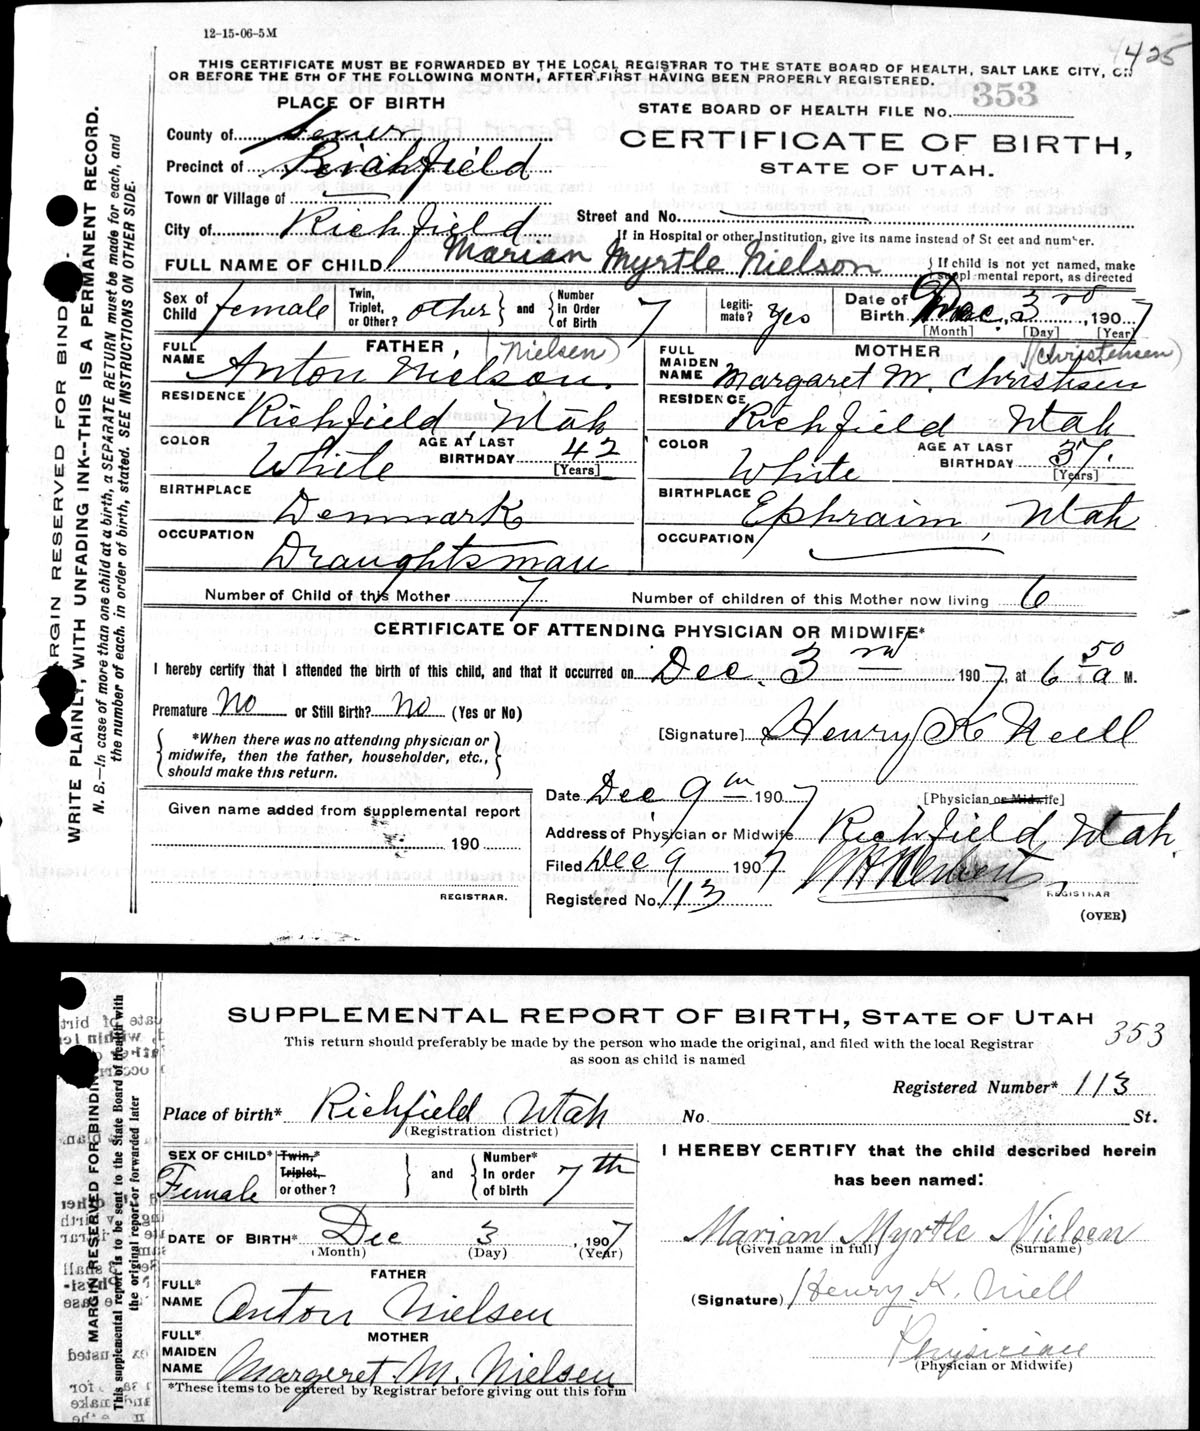 12-15-06-5M
425
THIS CERTIFICATE MUST BE FORWARDED BY THE LOCAL REGISTRAR TO THE STATE BOARD OF HEALTH, SALT LAKE CITY, ON
OR BEFORE THE 5TH OF THE FOLLOWING MONTH, AFTER FIRST HAVING BEEN PROPERLY REGISTERED.
PLACE OF BIRTH
STATE BOARD OF HEALTH FILE No. 353
County of Sevier
CERTIFICATE OF BIRTH,
Precinct of Richfield
STATE OF UTAH.
Town or Village of
Street and No.
City of Richfield
If in Hospital or other Institution, give its name instead of Street and number.
FULL NAME OF CHILD Marian Myrtle Nielson { If child is not yet named, make supplemental report, as directed
Sex of Child female Twin, Triplet, or Other? other } and { Number in Order of Birth 7 Legiti-mate? yes Date of Birth Dec. 3rd, 1907
[Month] [Day] [Year]
FATHER (Nielsen)
FULL NAME Anton Nielson.
RESIDENCE Richfield, Utah
COLOR White AGE AT LAST BIRTHDAY 42 [Years]
BIRTHPLACE Denmark
OCCUPATION Draughtsman
MOTHER (Christensen)
FULL MAIDEN NAME Margaret M. Christisen
RESIDENCE Richfield Utah
COLOR White AGE AT LAST BIRTHDAY 37. [Years]
BIRTHPLACE Ephraim, Utah
OCCUPATION
Number of Child of this Mother 7 Number of children of this Mother now living 6
CERTIFICATE OF ATTENDING PHYSICIAN OR MIDWIFE*
I hereby certify that I attended the birth of this child, and that it occurred on Dec. 3rd 1907, at 6 50 a M.
Premature No or Still Birth? No (Yes or No)
[Signature] Henry K Neell
*When there was no attending physician or
midwife, then the father, householder, etc.,
should make this return.
Date Dec 9th 1907 [Physician or Midwife]
Given name added from supplemental report
190
REGISTRAR.
Address of Physician or Midwife Richfield, Utah.
Filed Dec 9 1907
REGISTRAR
Registered No. 113
(OVER)
MARGIN RESERVED FOR BINDING.
WRITE PLAINLY, WITH UNFADING INK--THIS IS A PERMANENT RECORD.
N. B.—In case of more than one child at a birth, a SEPARATE RETURN must be made for each, and
the number of each, in order of birth, stated. SEE INSTRUCTIONS ON OTHER SIDE.
SUPPLEMENTAL REPORT OF BIRTH, STATE OF UTAH 353
This return should preferably be made by the person who made the original, and filed with the local Registrar
as soon as child is named
Registered Number* 113
Place of birth* Richfield Utah No. St.
(Registration district)
SEX OF CHILD* Female Twin,* Triplet, or other? } and { Number* In order of birth 7th
DATE OF BIRTH* Dec 3, 1907
(Month) (Day) (Year)
FATHER
FULL* NAME Anton Nielsen
MOTHER
FULL* MAIDEN NAME Margeret. M. Nielsen
*These items to be entered by Registrar before giving out this form
I HEREBY CERTIFY that the child described herein
has been named:
Marian Myrtle Nielsen
(Given name in full) (Surname)
(Signature) Henry. K. Niell
Physician
(Physician or Midwife)
MARGIN RESERVED FOR BINDING
This supplemental report is to be sent to the State Board of Health with
the original report or forwarded later